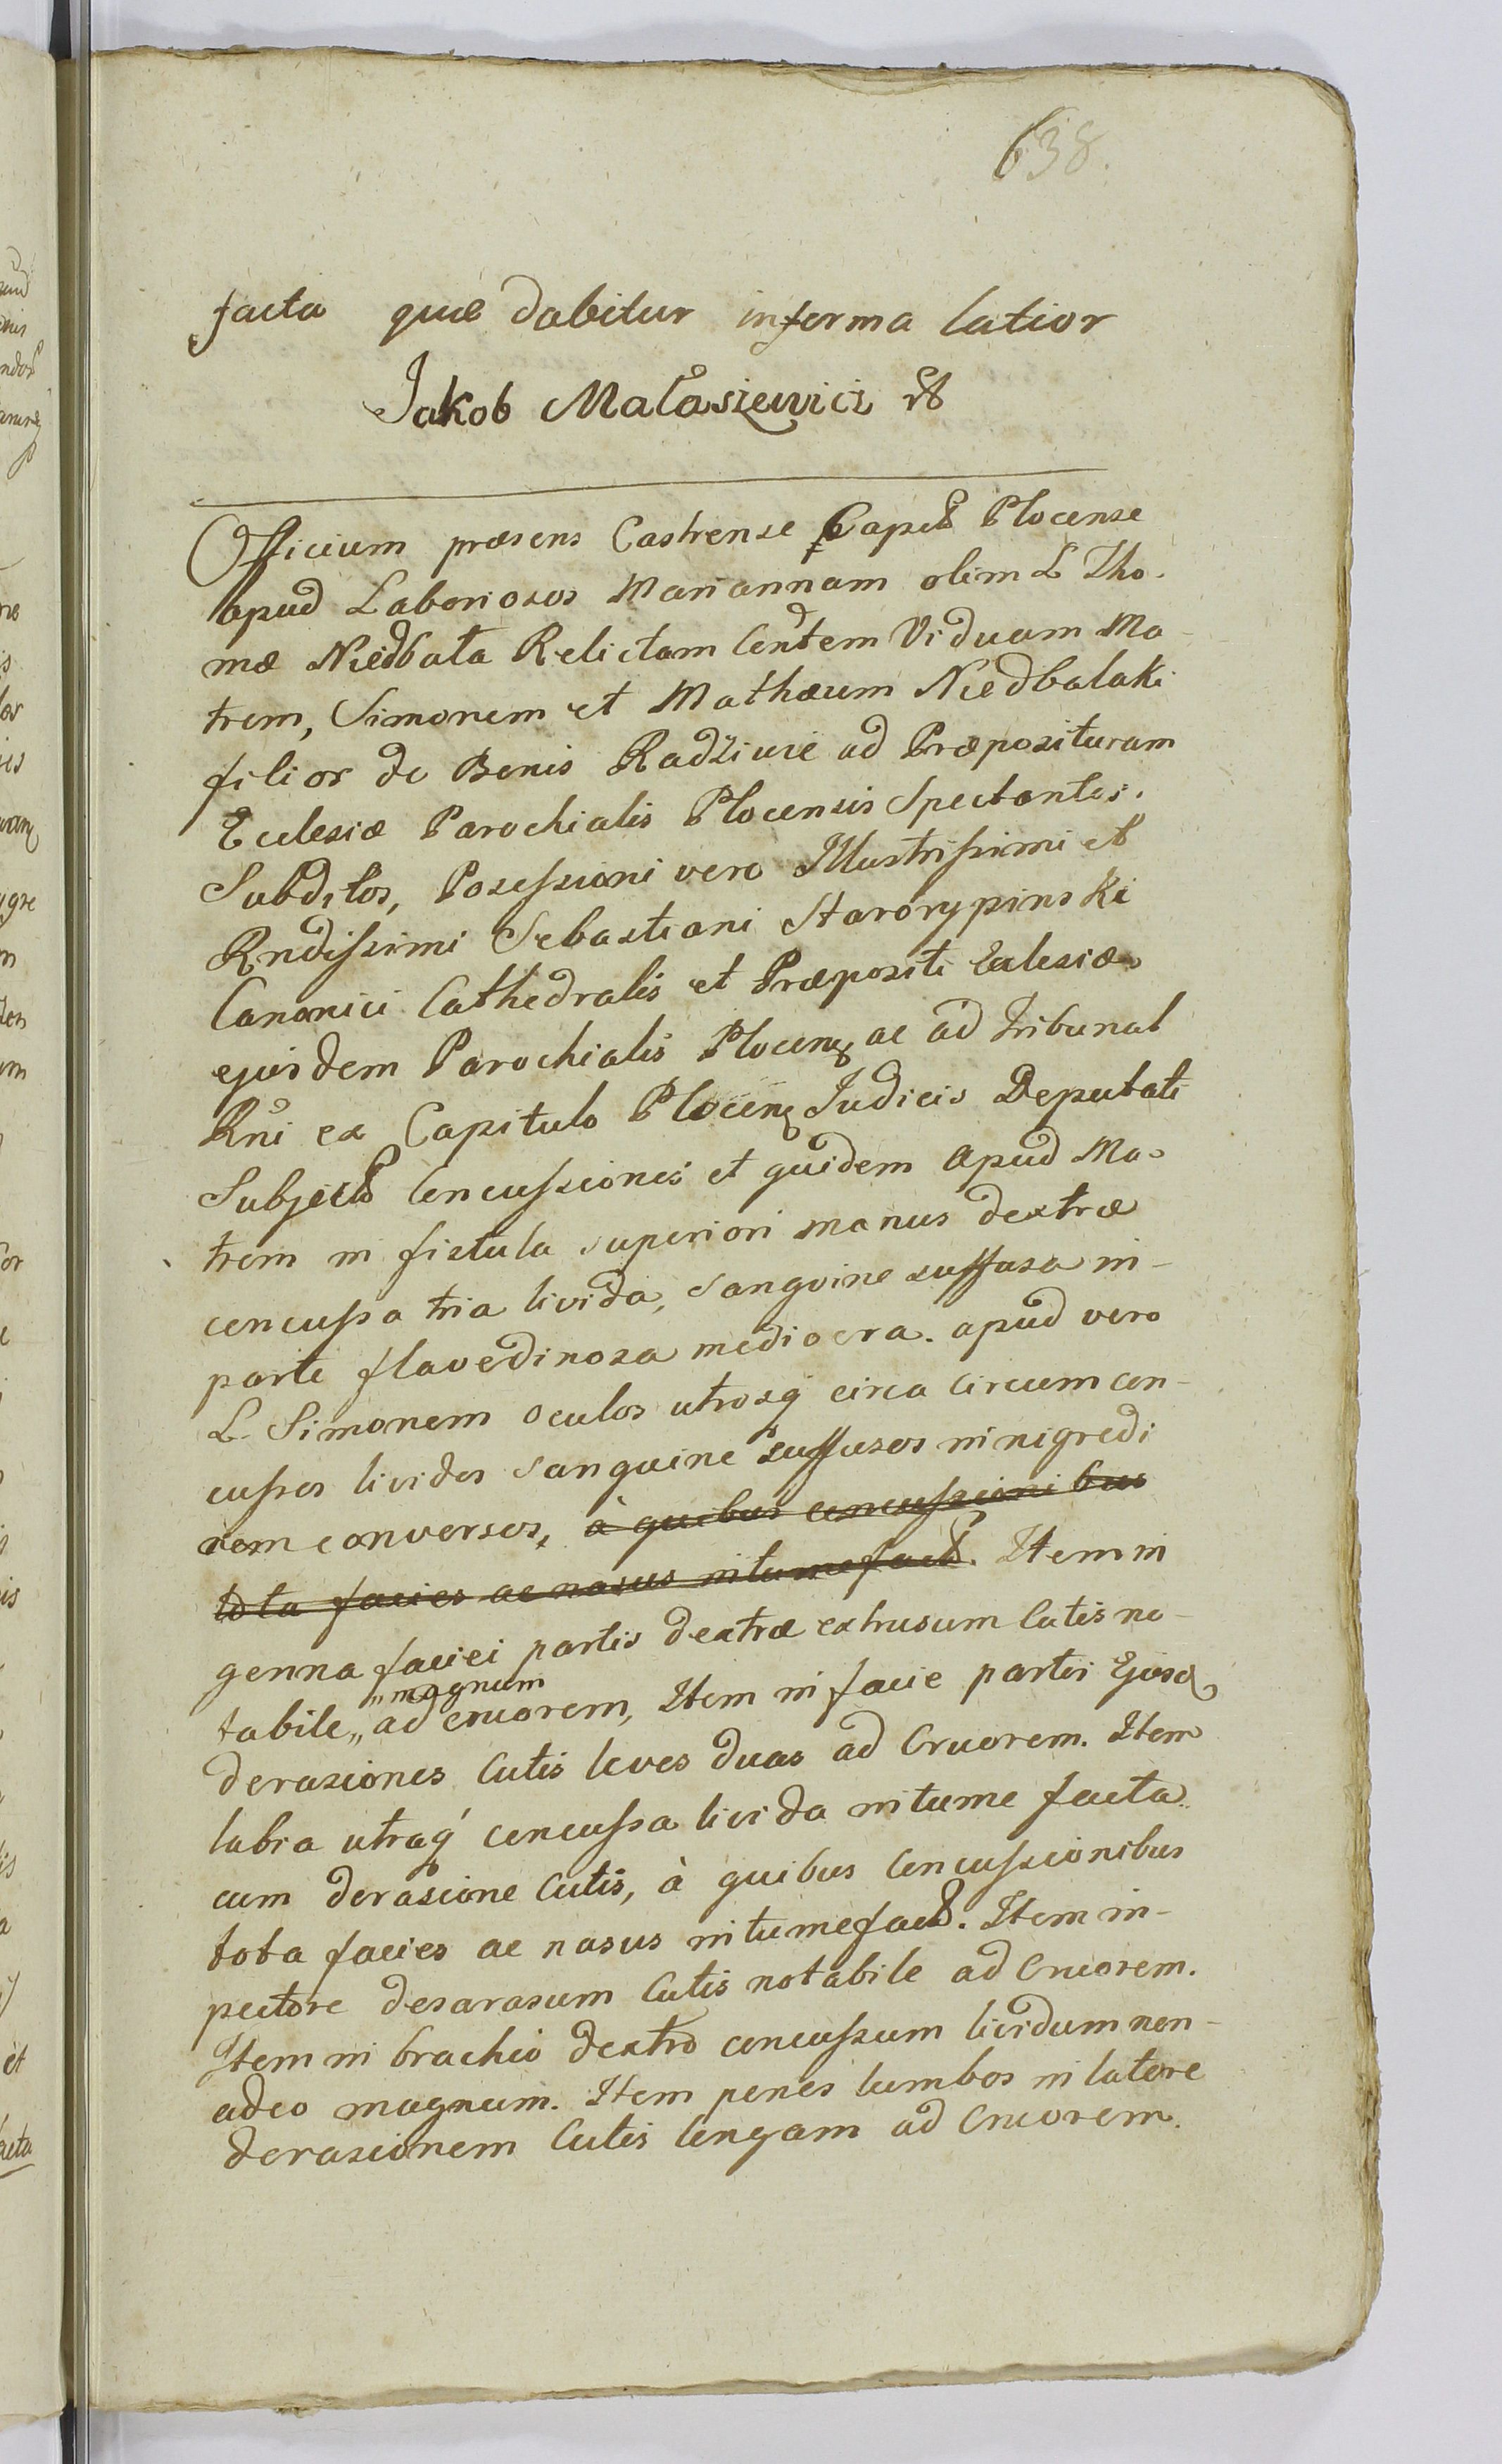 638.
facta quæ dabitur in forma latior
Jakob Małasziewicz
Officium præsens Castrense Capit Plocense
apud Laboriosos Mariannam olim L Tho-
mæ Niedbała Relictam Consortem Viduam Ma-
trem, Simonem et Mathæum Niedbalaki
filios de Bonis Radziwie ad Præposituram
Ecclesiæ Parochialis Plocensis Spectantes.
Subditos, Possessioni vero Illustrissimi et
Rndissimi Sebastiani Starorypinski
Canonici Cathedralis et Præpositi Ecclesiæ
ejusdem Parochialis Plocen ac ad Tribunal
Rni ex Capitulo Plocen Judicis Deputati
Subject Concussiones et quidem apud Ma-
trem in fistula superiori manus dextræ
concussa tria livida, sanguine suffusa in-
parte flavedinosa mediocra. apud vero
L. Simonem oculos utrosq circa circum con-
cussos lividos sanguine suffusos in nigredi
nem conversos, à quibus concussionibus
tota facies ac nasus intumefact. Item in
genna faciei partis dextræ extrusum Cutis no-
tabile,, ad cruorem, Item in facie partis Ejusd
"magnum
derasiones Cutis leves duas ad Cruorem. Item
labra utraq concussa livida intume facta
cum derasione Cutis, à quibus Concussionibus
tota facies ac nasus intumefact. Item in-
pectore desarasum Cutis notabile ad Cruorem.
Item in brachio dextro concussum lividum non-
adeo magnum. Item penes lumbos in latere
derasionem Cutis longam ad Cruorem.